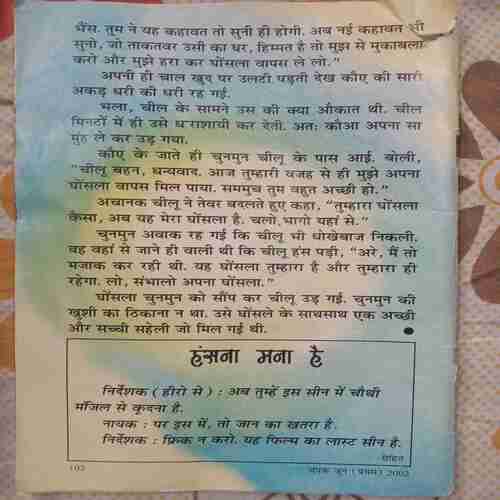 भैंस. तुम ने यह कहावत तो सुनी ही होगी. अब नई कहावत भी
सुनो, जो ताकतवर उसी का घर, हिम्मत है तो मुझ से मुकाबला
करो और मुझे हरा कर घोंसला वापस ले लो.”
अपनी ही चाल खुद पर उलटी पड़ती देख कौए की सारी
अकड़ धरी की धरी रह गई.
भला, चील के सामने उस की क्या औकात थी. चील
मिनटों में ही उसे धराशायी कर देती. अतः कौआ अपना सा
मुंह ले कर उड़ गया.
कौए के जाते ही चुनमुन चीलू के पास आई. बोली,
“चीलू बहन, धन्यवाद. आज तुम्हारी वजह से ही मुझे अपना
घोंसला वापस मिल पाया. सचमुच तुम बहुत अच्छी हो.”
अचानक चीलू ने तेवर बदलते हुए कहा, “तुम्हारा घोंसला
कैसा, अब यह मेरा घोंसला है. चलो, भागो यहां से.”
चुनमुन अवाक रह गई कि चीलू भी धोखेबाज निकली.
वह वहां से जाने ही वाली थी कि चीलू हंस पड़ी, “अरे, मैं तो
मजाक कर रही थी. यह घोंसला तुम्हारा है और तुम्हारा ही
रहेगा. लो, संभालो अपना घोंसला.”
घोंसला चुनमुन को सौंप कर चीलू उड़ गई. चुनमुन की
खुशी का ठिकाना न था. उसे घोंसले के साथसाथ एक अच्छी
और सच्ची सहेली जो मिल गई थी.
हंसना मना है
निर्देशक (हीरो से) : अब तुम्हें इस सीन में चौथी
मंजिल से कूदना है.
नायक : पर इस में, तो जान का खतरा है.
निर्देशक : फ्रिक न करो. यह फिल्म का लास्ट सीन है.
-रोहित
102
चंपक जून (प्रथम) 2002